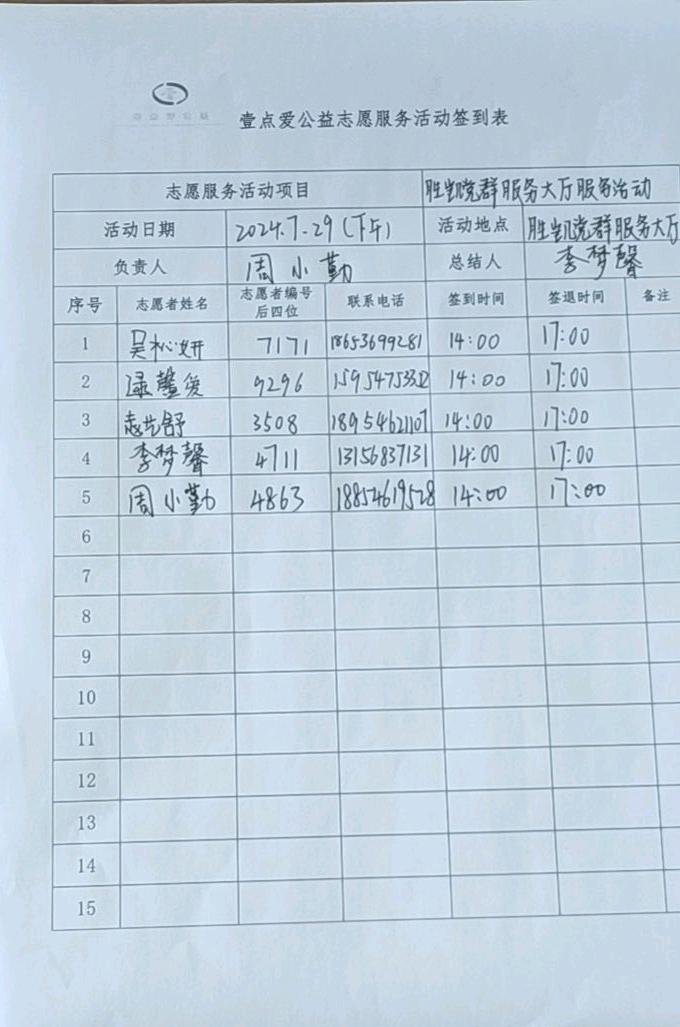 壹点爱公益志愿服务活动签到表
志愿服务活动项目 胜凯党群服务大厅服务活动
活动日期 2024.7.29(下午) 活动地点 胜凯党群服务大厅
负责人 周小勤 总结人 李梦馨
序号 志愿者姓名 志愿者编号后四位 联系电话 签到时间 签退时间 备注
1 吴松妍 7171 18653699281 14:00 17:00
2 9296 14:00 17:00
3 3508 18954621107 14:00 17:00
4 李梦馨 4711 13156837131 14:00 17:00
5 周小勤 4863 18854619528 14:00 17:00
6
7
8
9
10
11
12
13
14
15